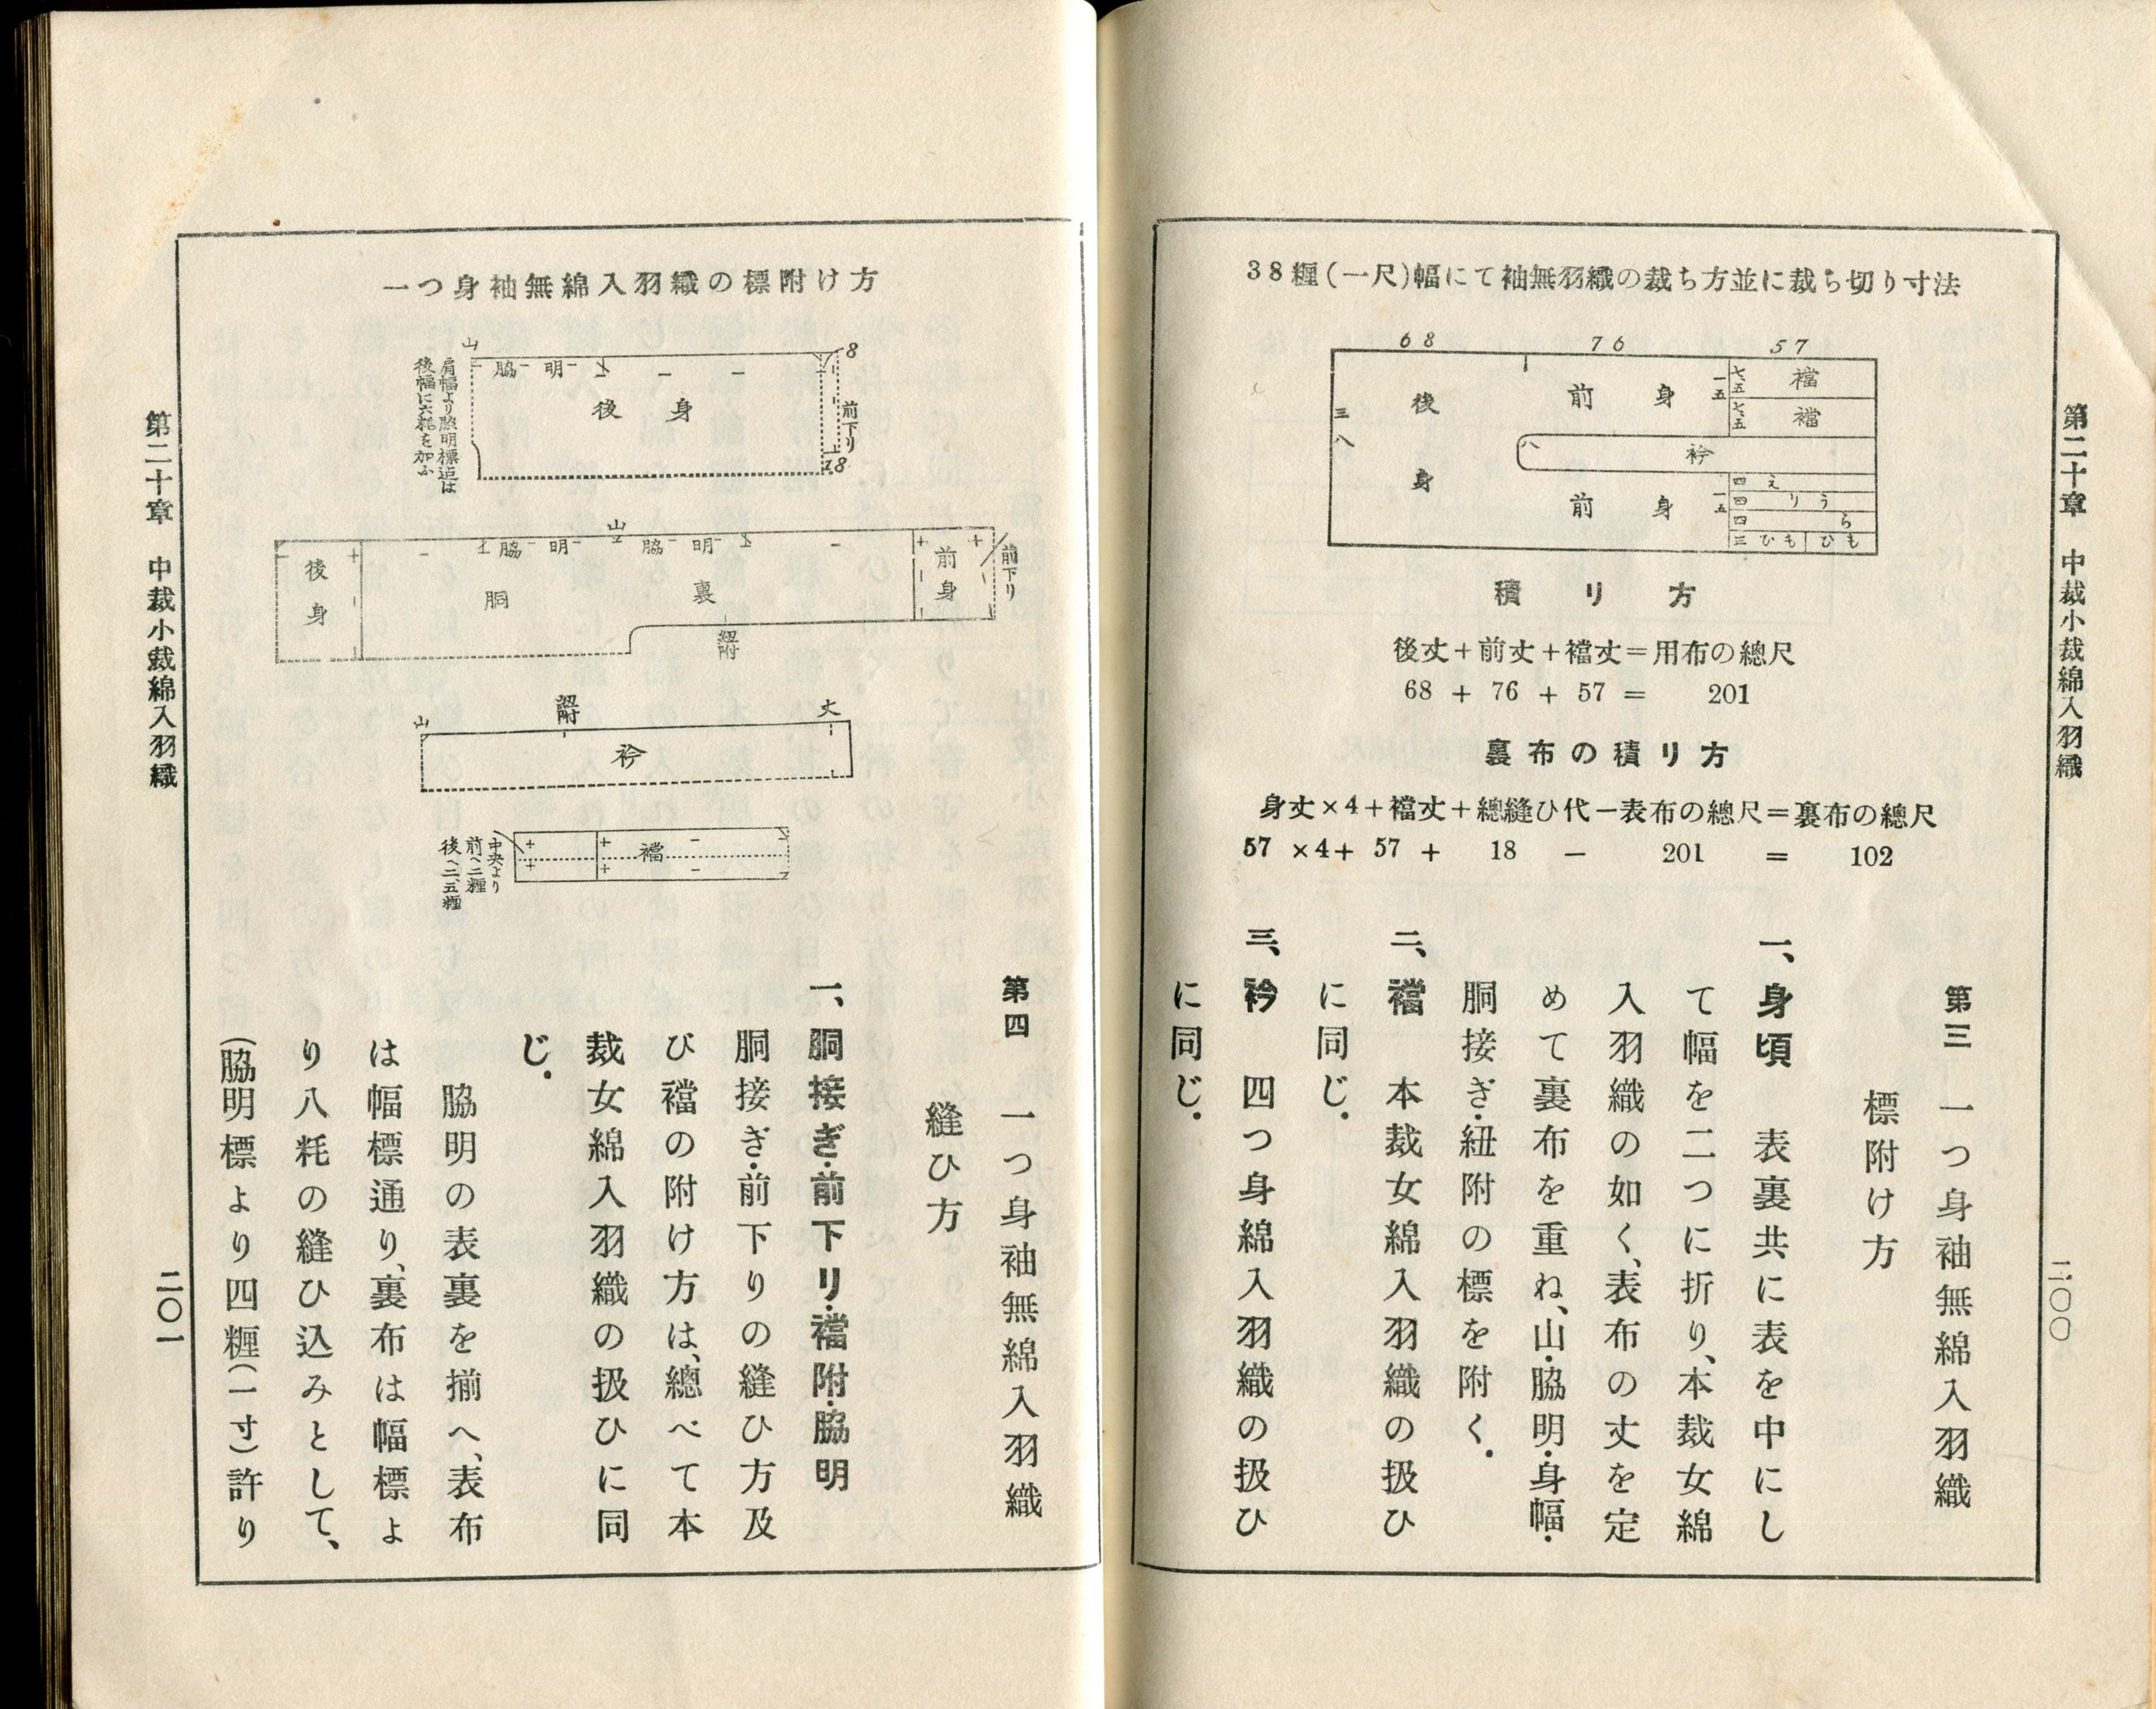 第二十章　中裁小裁綿入羽織
二〇〇
38糎(一尺)幅にて袖無羽織の裁ち方並に裁ち切り寸法
68 76 57
後身
三八
前身
一五
七五
襠
七五
襠
八
衽
前身
一五
四 え
四 りう
四 ら
三 ひも ひも
積り方
後丈+前丈+襠丈=用布の總尺
68 + 76 + 57 = 201
裏布の積り方
身丈×4+襠丈+總縫ひ代−表布の總尺=裏布の總尺
57 ×4+ 57 + 18 − 201 = 102
第三　一つ身袖無綿入羽織
標附け方
一、身頃　表裏共に表を中にし
て幅を二つに折り、本裁女綿
入羽織の如く、表布の丈を定
めて裏布を重ね、山・脇明・身幅・
胴接ぎ・紐附の標を附く.
二、襠　本裁女綿入羽織の扱ひ
に同じ.
三、衿　四つ身綿入羽織の扱ひ
に同じ.
一つ身袖無綿入羽織の標附け方
山
脇明
8
後身
前下り
18
肩幅より脇明標迄は
後幅に六粍を加ふ
山
脇明
脇明
後身
胴裏
前身
前下り
紐附
山
紐附
丈
衿
襠
中央より
前へ二糎
後へ二、五糎
第四　一つ身袖無綿入羽織
縫ひ方
一、胴接ぎ・前下り・襠附・脇明
胴接ぎ・前下りの縫ひ方及
び襠の附け方は、總べて本
裁女綿入羽織の扱ひに同
じ.
脇明の表裏を揃へ、表布
は幅標通り、裏布は幅標よ
り八粍の縫ひ込みとして、
(脇明標より四糎(一寸)許り
第二十章　中裁小裁綿入羽織
二〇一